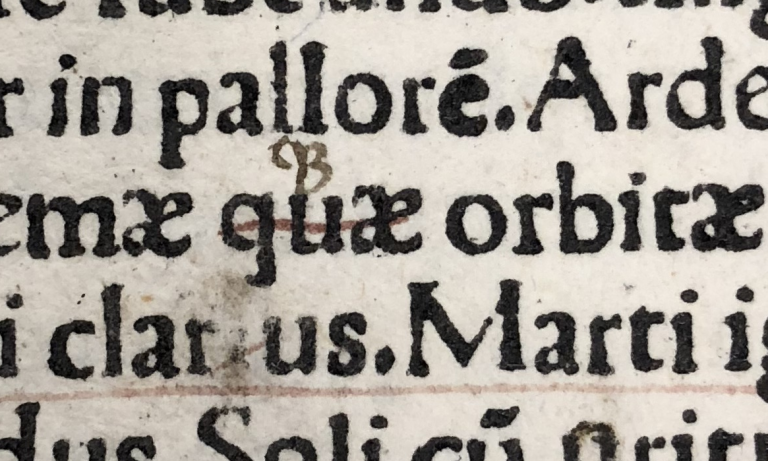 r in pallorē. Arde
B
emæ quæ orbitæ
i clarius. Marti ig
dus Soli cū